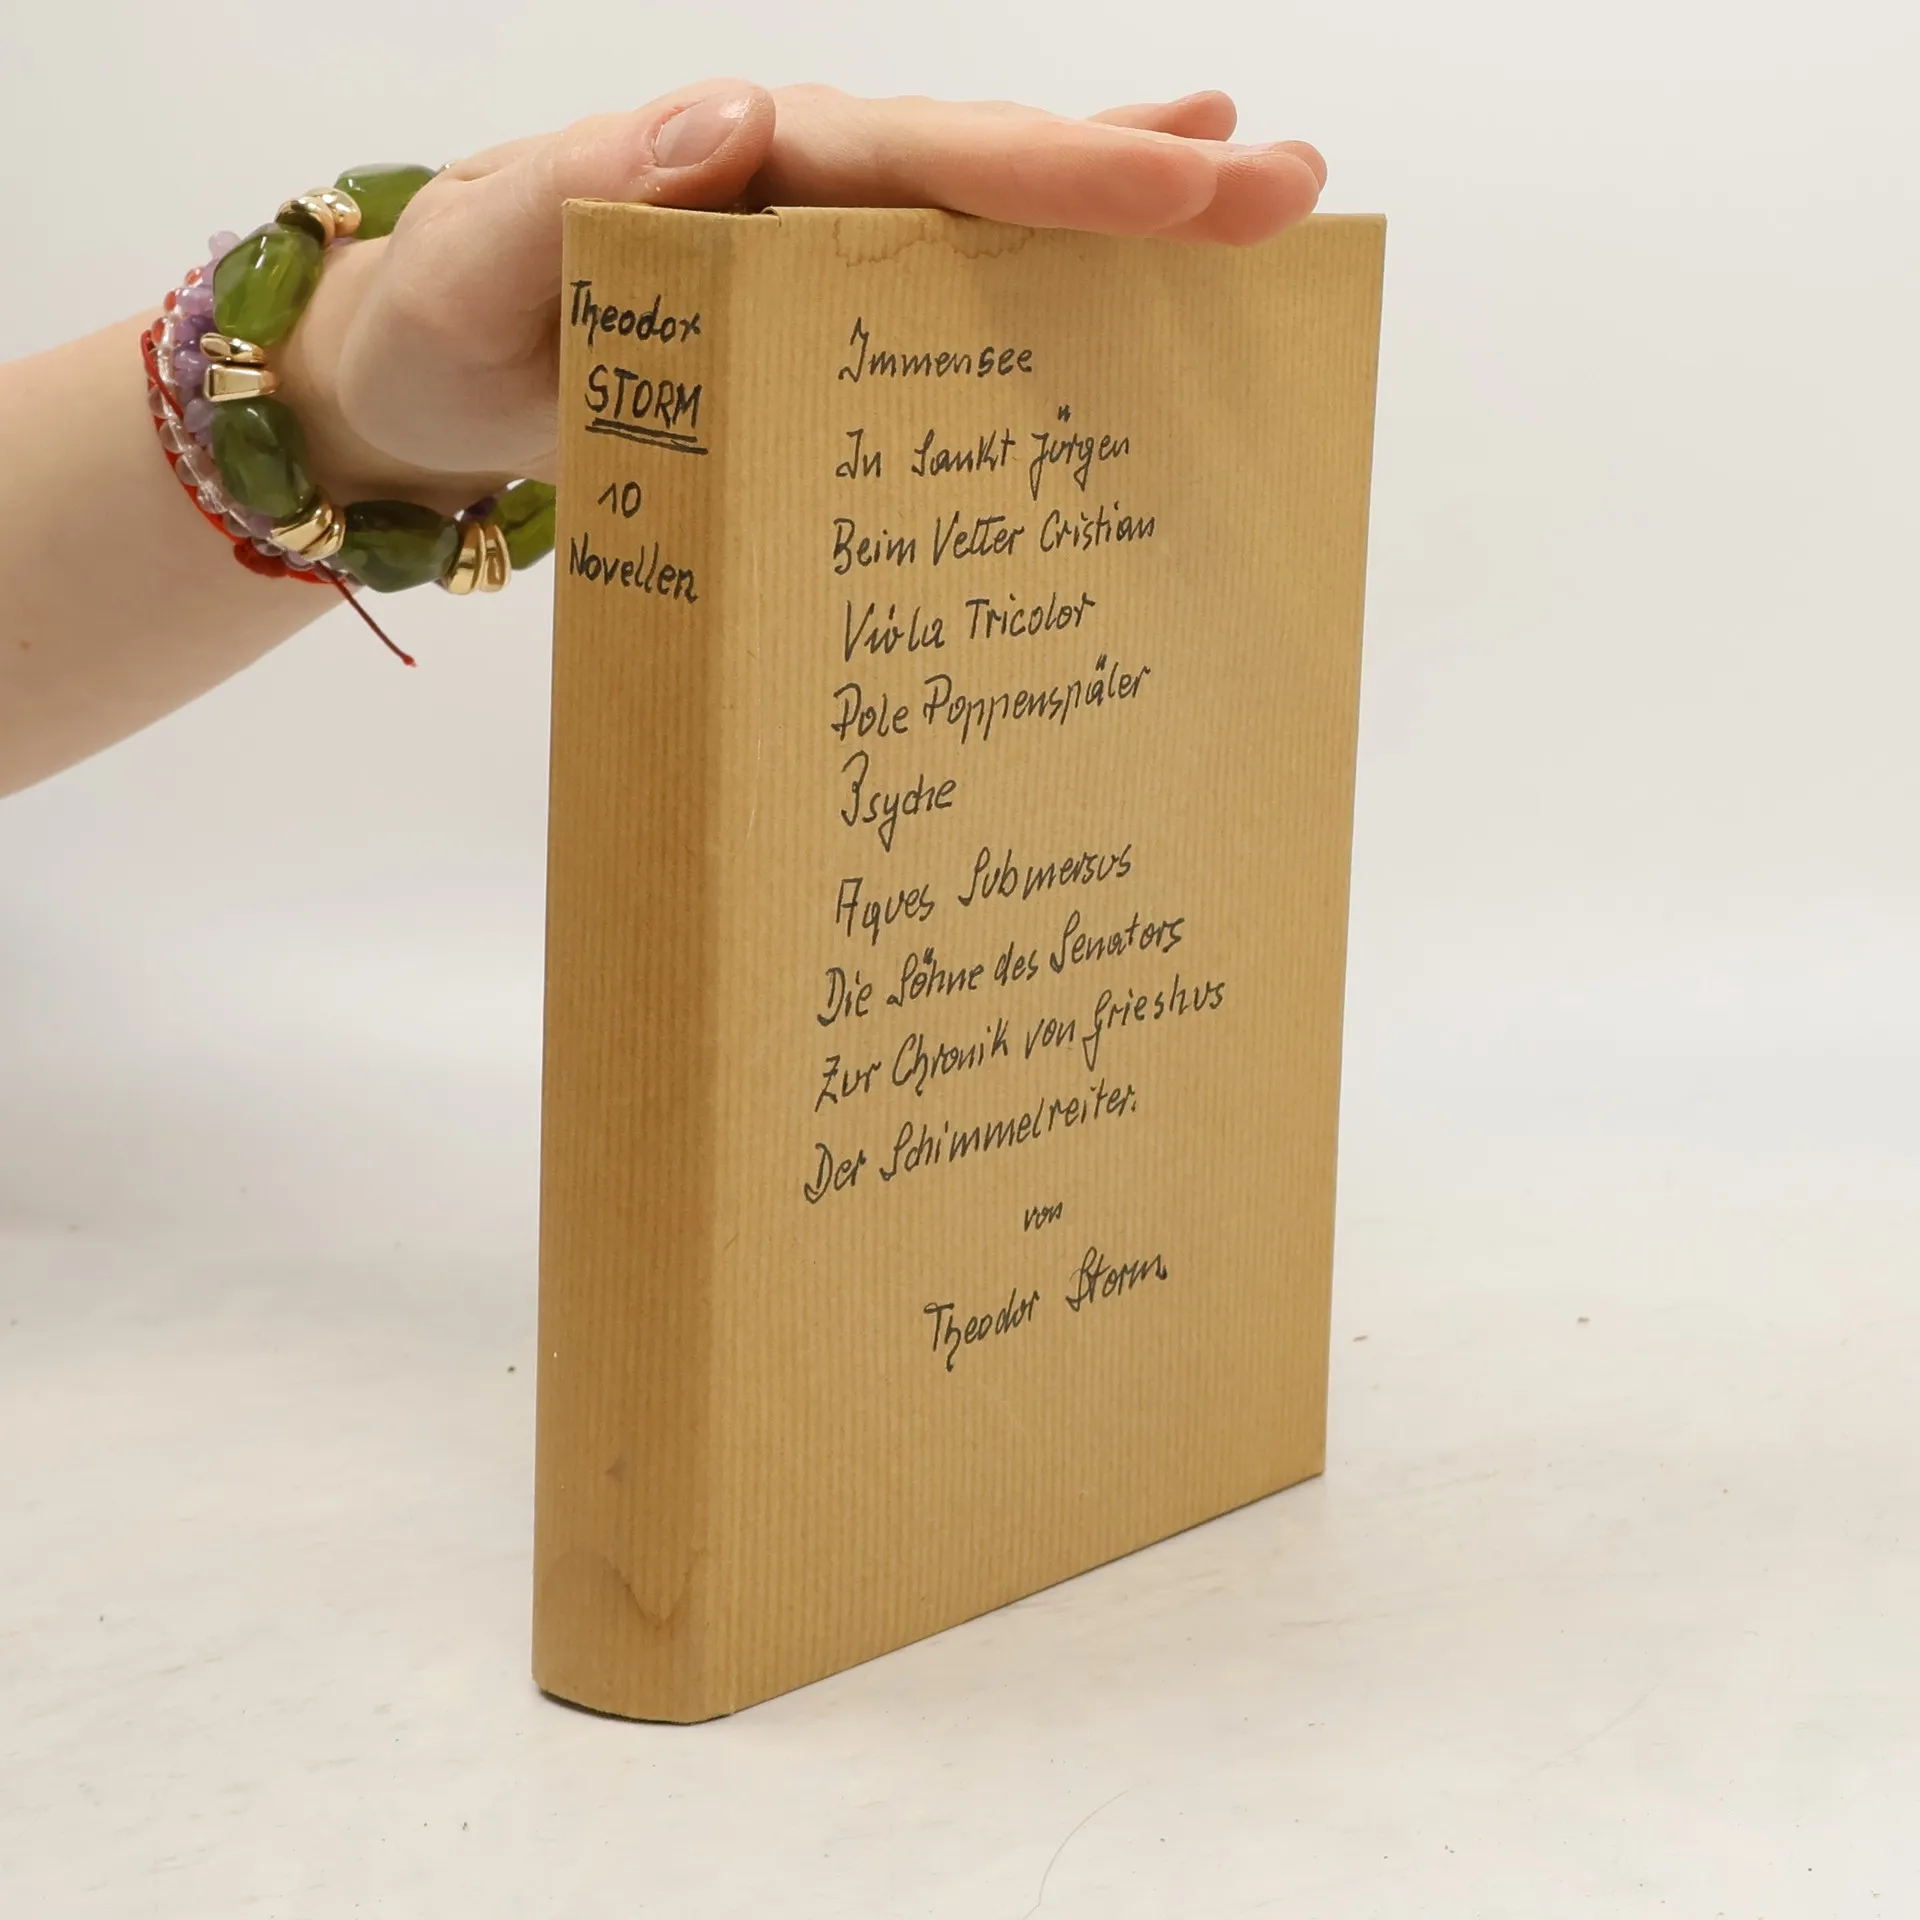 Theodor
STORM
10
Novellen
Immensee
In Sankt Jürgen
Beim Vetter Cristian
Viola Tricolor
Pole Poppenspäler
Psyche
Aques Submersus
Die Söhne des Senators
Zur Chronik von Grieshus
Der Schimmelreiter.
von
Theodor Storm